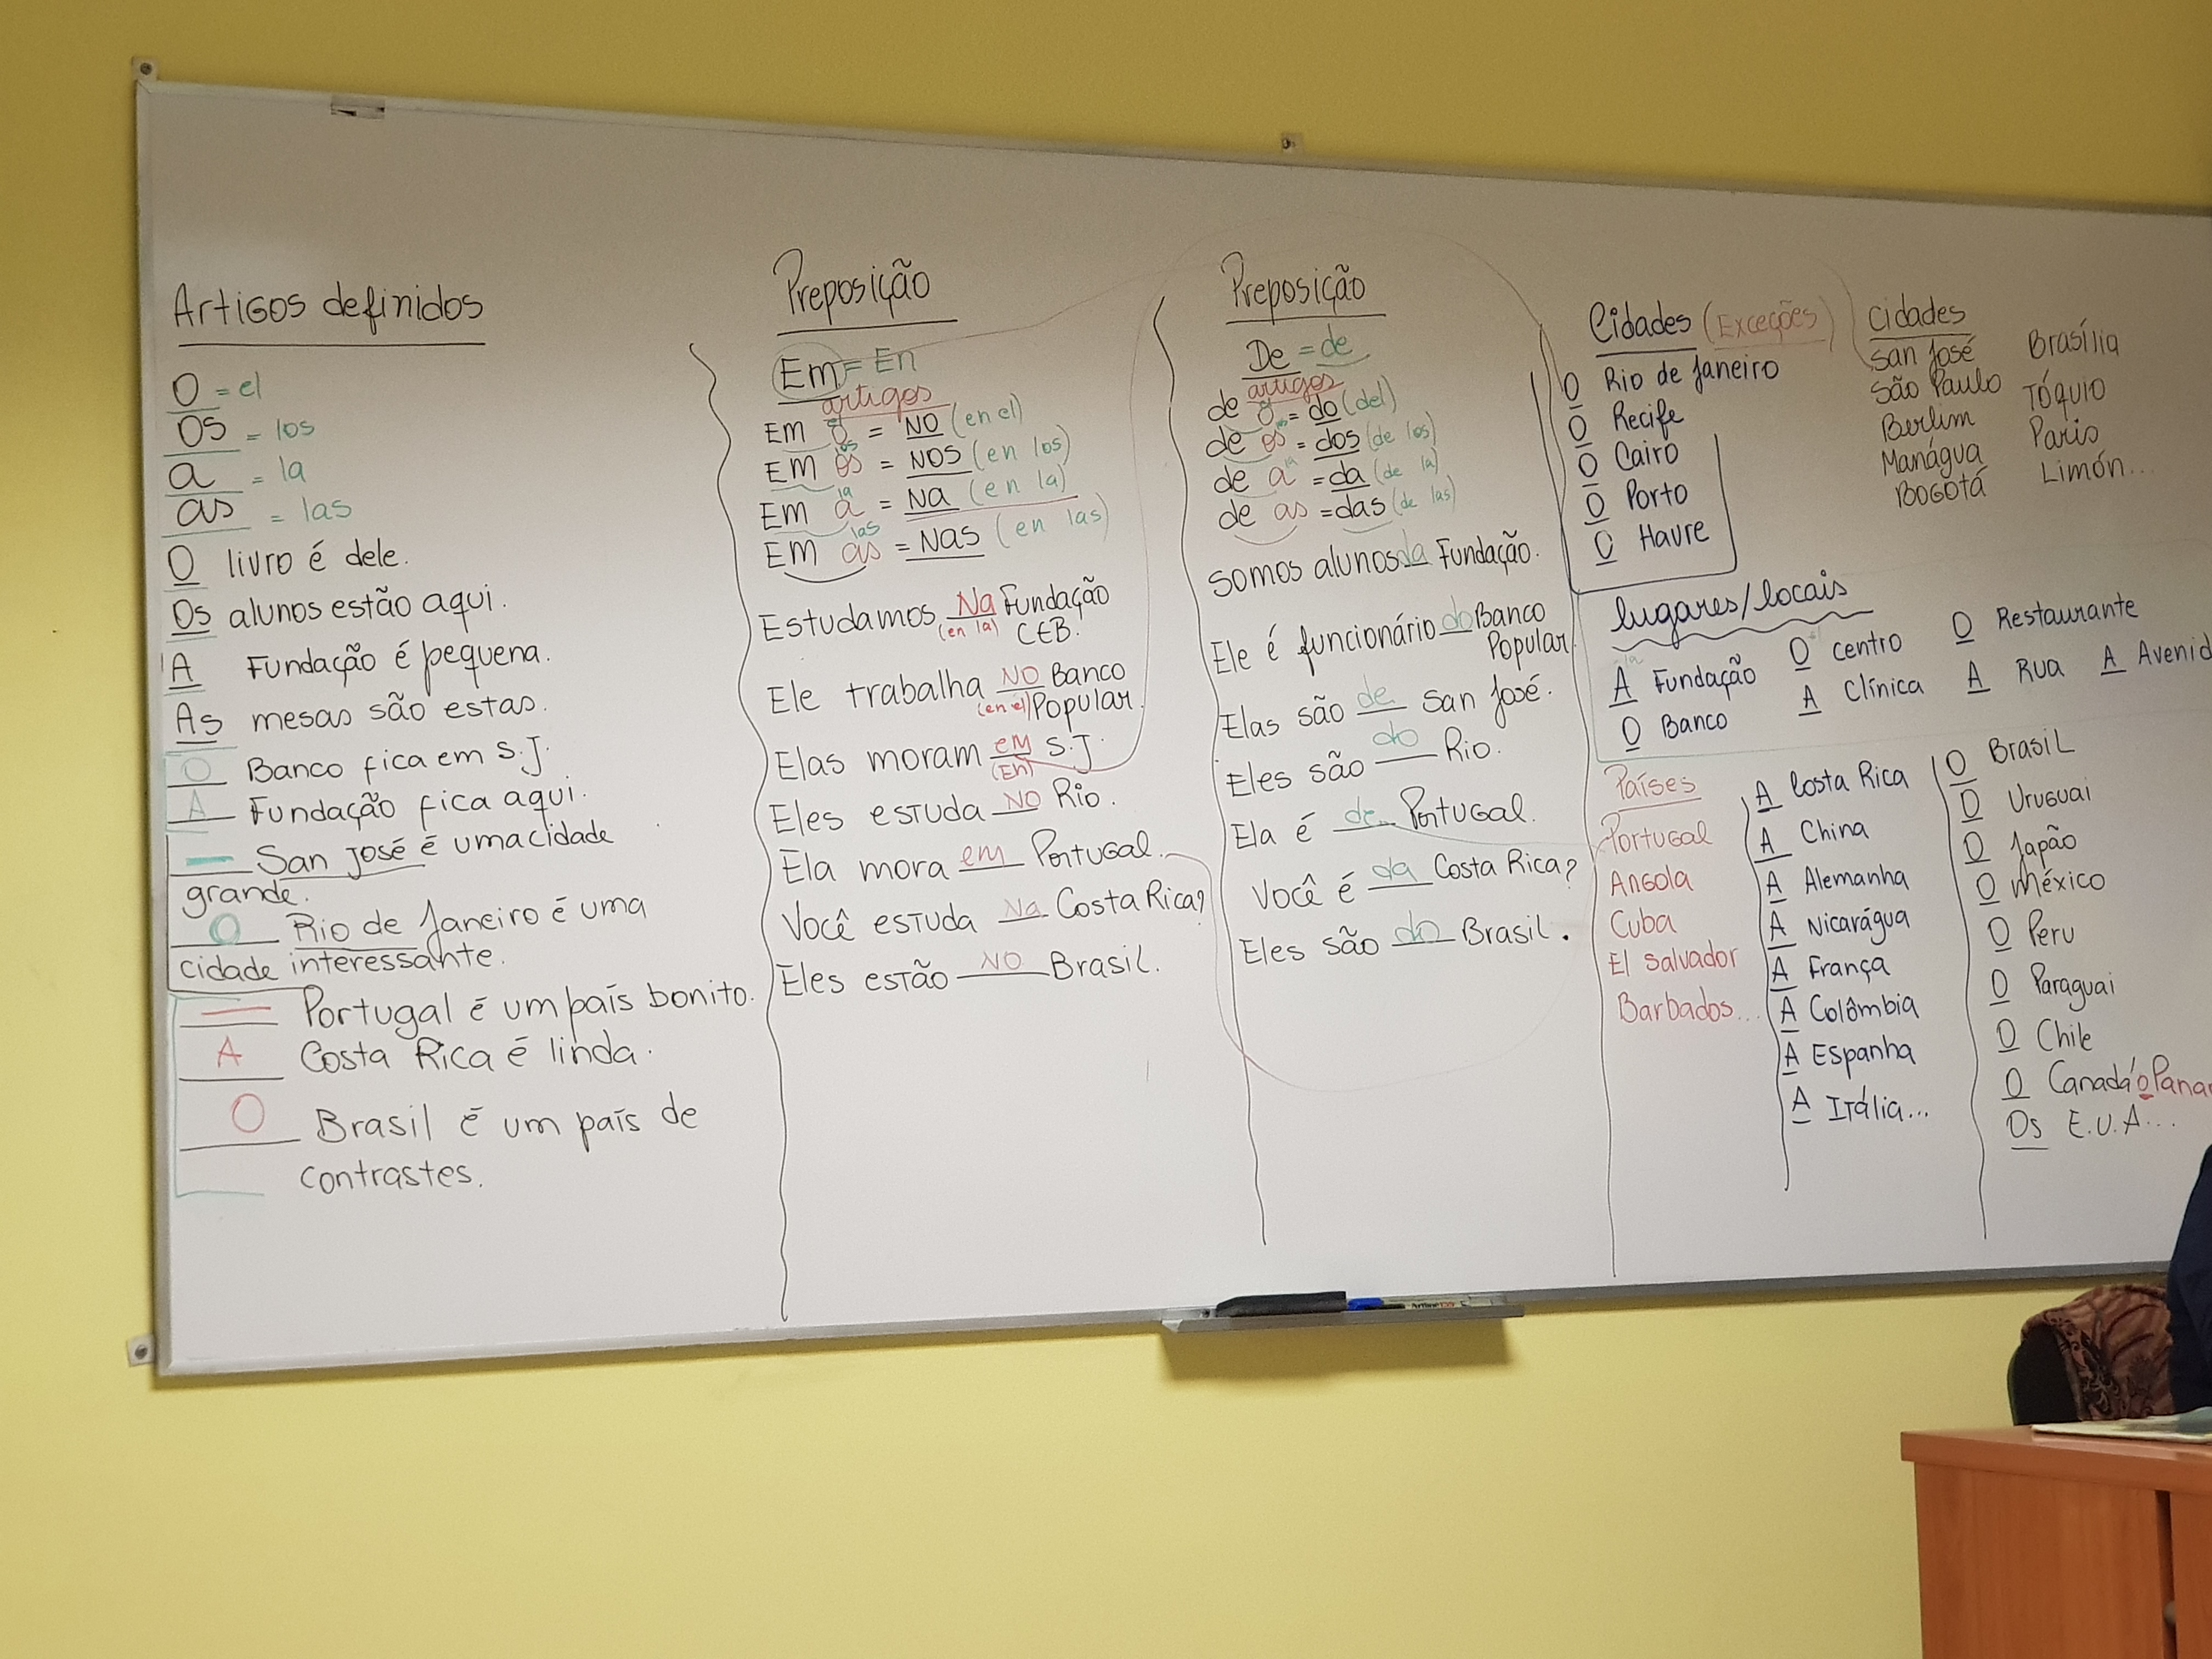 Artigos definidos
O = el
Os = los
a = la
as = las
O livro é dele.
Os alunos estão aqui.
A Fundação é pequena.
As mesas são estas.
O Banco fica em S.J.
A Fundação fica aqui.
— San José é uma cidade
grande.
O Rio de Janeiro é uma
cidade interessante.
— Portugal é um país bonito.
A Costa Rica é linda.
O Brasil é um país de
contrastes.
Preposição
Em = En
artigos
el
Em o = NO (en el)
los
Em os = NOS (en los)
la
Em a = Na (en la)
las
Em as = Nas (en las)
Estudamos Na Fundação
(en la) CEB.
Ele trabalha NO Banco
(en el) Popular.
Elas moram em S.J.
(En)
Eles estuda NO Rio.
Ela mora em Portugal.
Você estuda Na Costa Rica?
Eles estão NO Brasil.
Preposição
De = de
artigos
de o = do (del)
de os = dos (de los)
la
de a = da (de la)
de as = das (de las)
Somos alunos da Fundação.
Ele é funcionário do Banco
Popular
Elas são de San José.
Eles são do Rio.
Ela é de Portugal.
Você é da Costa Rica?
Eles são do Brasil.
Cidades (Exceções)
O Rio de Janeiro
O Recife
O Cairo
O Porto
O Havre
Cidades
San José
São Paulo
Berlim
Manágua
Bogotá
Brasília
Tóquio
Paris
Limón...
lugares/locais
la
A Fundação O centro O Restaurante
O Banco A Clínica A Rua A Avenid
Países
Portugal
Angola
Cuba
El Salvador
Barbados...
A Costa Rica
A China
A Alemanha
A Nicarágua
A França
A Colômbia
A Espanha
A Itália...
O Brasil
O Uruguai
O Japão
O México
O Peru
O Paraguai
O Chile
O Canadá o Pana
Os E.U.A...